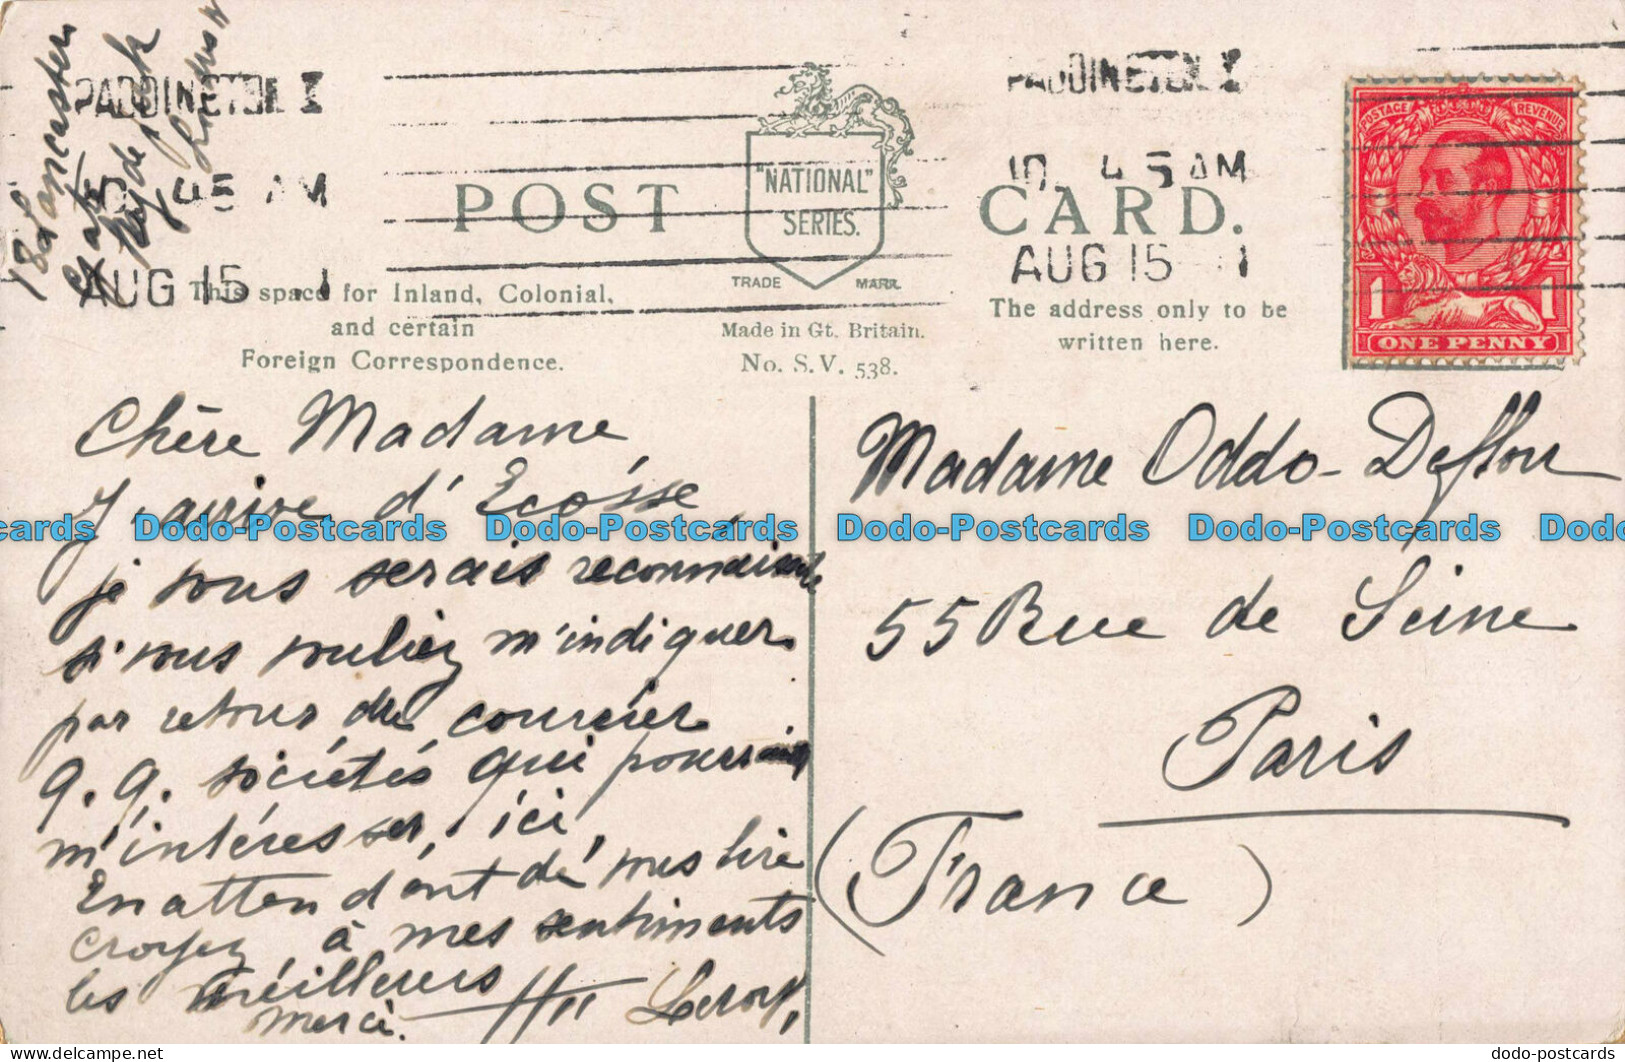 18 Lancaster
Gate
Hyde Park
London W
PADDINGTON I
10 45 AM
AUG 15 11
PADDINGTON I
10 45 AM
AUG 15 1
POST CARD.
"NATIONAL"
SERIES.
TRADE MARK
POSTAGE REVENUE
1 1
ONE PENNY
This space for Inland, Colonial,
and certain
Foreign Correspondence.
Made in Gt. Britain.
No. S.V. 538.
The address only to be
written here.
Chère Madame
J'arrive d'Ecosse,
je vous serais reconnaissante
si vous vouliez m'indiquer
par retour du courrier
q. q. sociétés qui pourraient
m'intéresser, ici,
En attendant de vous lire
croyez à mes sentiments
les meilleurs
Merci. Leroy,
Madame Oddo-Deflou
55 Rue de Seine
Paris
(France)
Dodo-Postcards Dodo-Postcards Dodo-Postcards Dodo-Postcards Dodo-Postcards
dodo-postcards